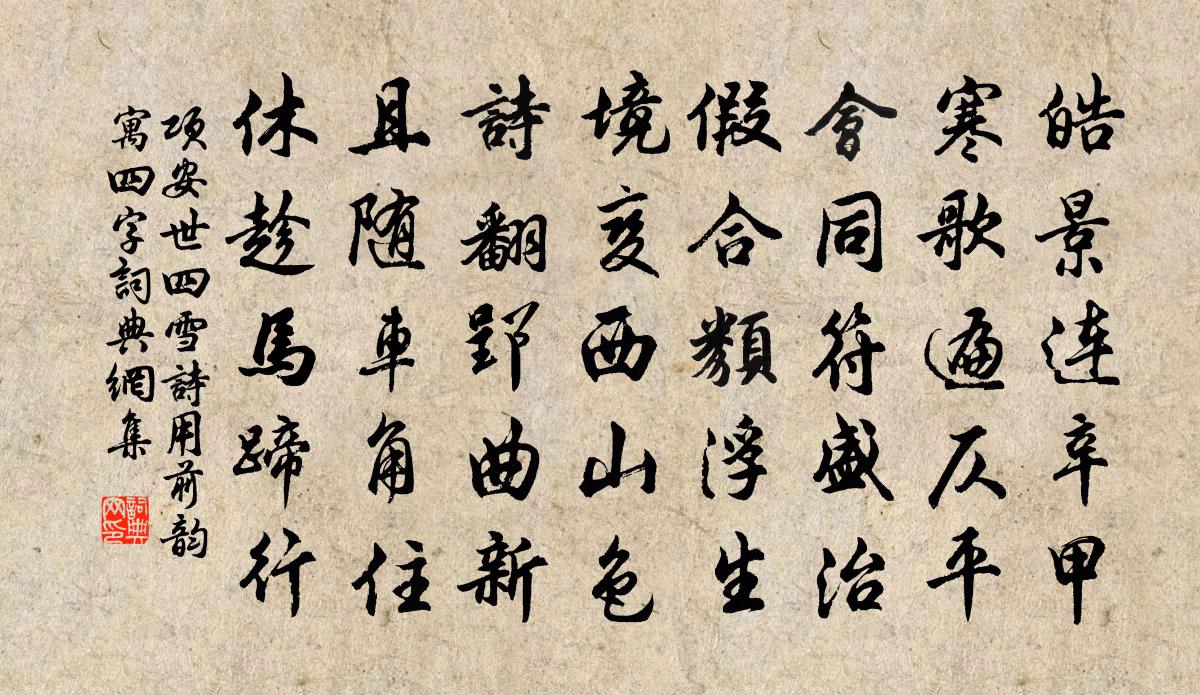 皓景連辛甲
寒歌遍仄平
會同符盛治
假合類浮生
境变西山色
詩翻郢曲新
且随車角住
休趁馬蹄行
项安世四雪詩用前韵
寓四字詞典網集
詞典
网印